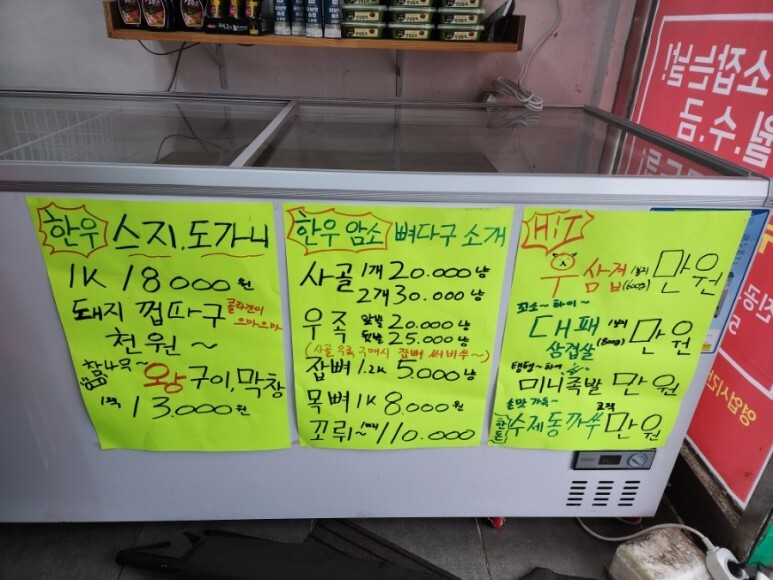 한우 스지.도가니
1K 18000원
돼지 껍따구 콜라겐이 으마으마
천원~
참나무~ 왕구이,막창
1팩 13.000원
한우 암소 뼈다구 소개
사골 1개 20.000냥
2개 30.000냥
우족 앞발 20.000냥
뒷발 25.000냥
(사골 우족 구매시 잡뼈 써비쑤~)
잡뼈 1.2K 5.000냥
목뼈 1K 8.000원
꼬뤼~ 110.000
HiT
우삼겹 (600g) 만원
꼬소~하이~
대패 삼겹살 (800g) 만원
탱탱~하이
미니족발 만원
손맛 가득~
한돈 수제동까쑤 만원
소잡는날!
월.수.금